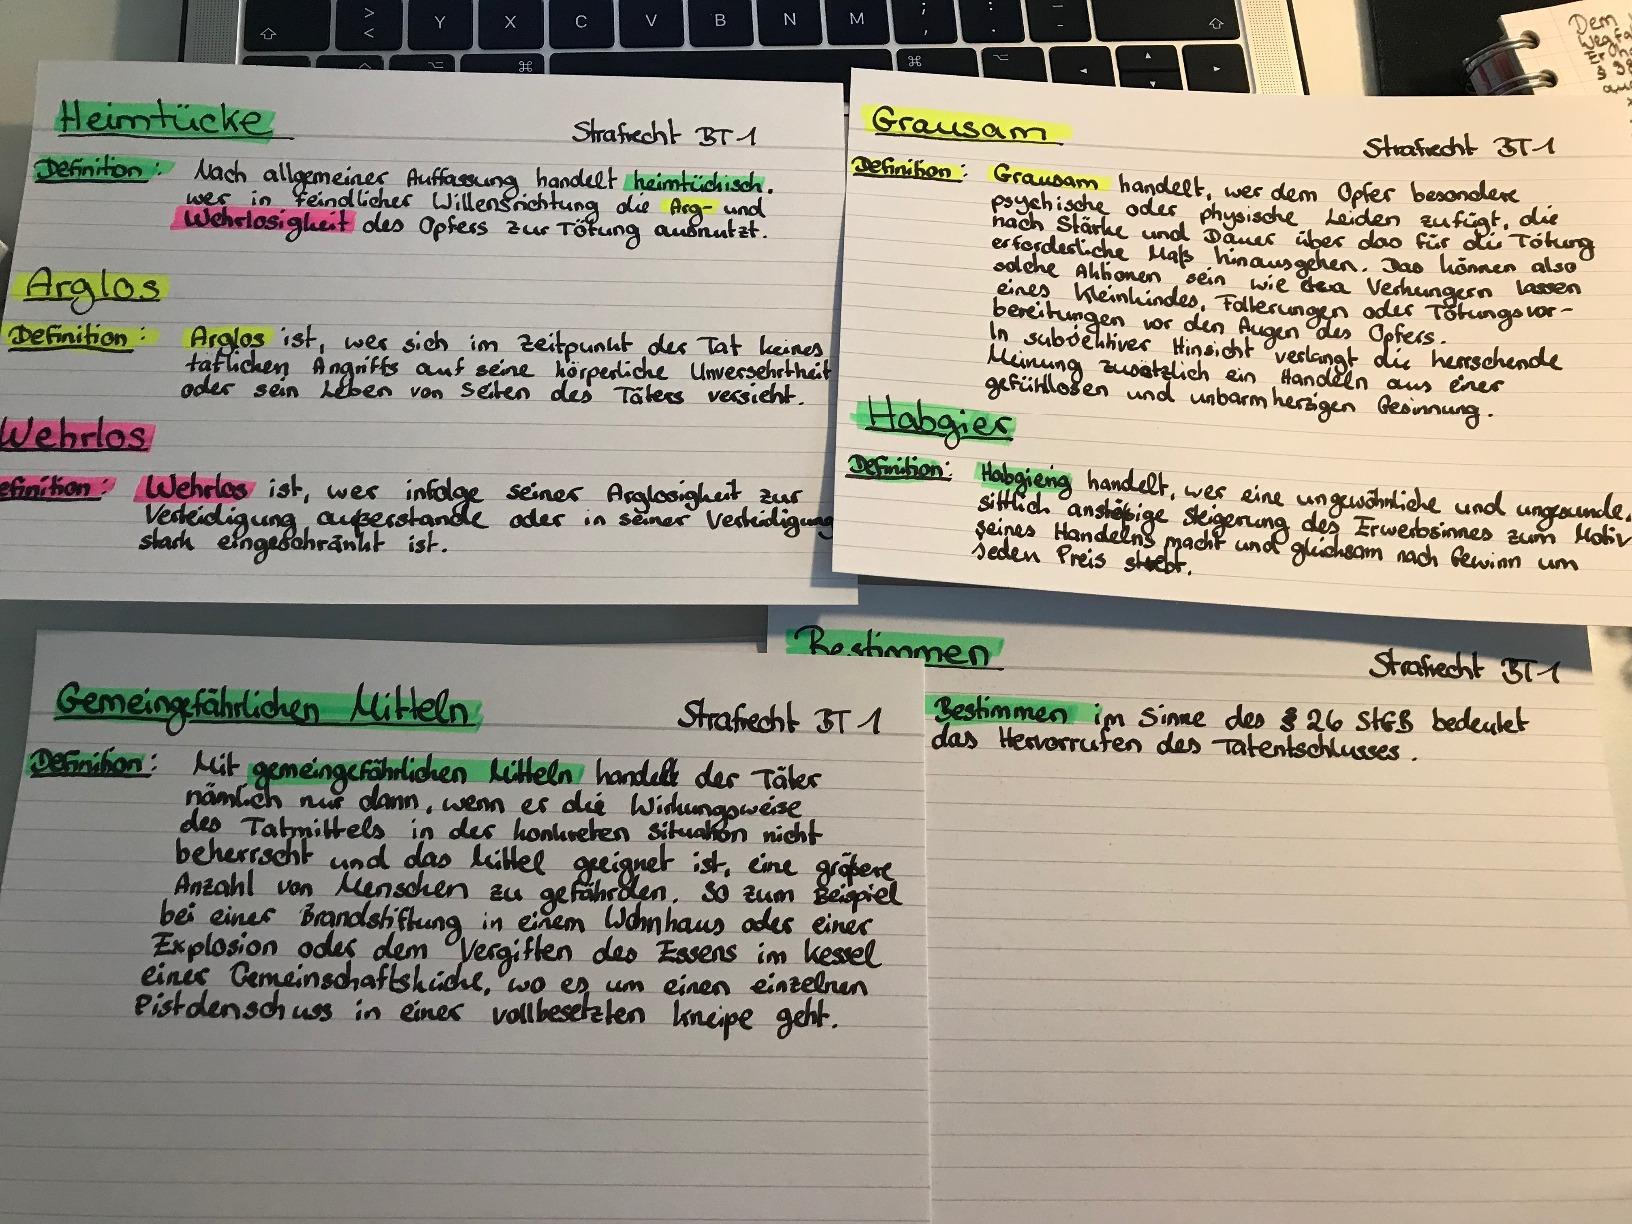 >
<
Y
X
C
V
B
N
M
;
,
:
.
-
⌥
⌘
⌘
⌥
Heimtücke
Strafrecht BT 1
Definition: Nach allgemeiner Auffassung handelt heimtückisch,
wer in feindlicher Willensrichtung die Arg- und
Wehrlosigkeit des Opfers zur Tötung ausnutzt.
Arglos
Definition: Arglos ist, wer sich im Zeitpunkt der Tat keines
tätlichen Angriffs auf seine körperliche Unversehrtheit
oder sein Leben von Seiten des Täters versieht.
Wehrlos
efinition: Wehrlos ist, wer infolge seiner Arglosigkeit zur
Verteidigung außerstande oder in seiner Verteidigung
stark eingeschränkt ist.
Grausam
Strafrecht BT 1
Definition: Grausam handelt, wer dem Opfer besondere
psychische oder physische Leiden zufügt, die
nach Stärke und Dauer über das für die Tötung
erforderliche Maß hinausgehen. Das können also
solche Aktionen sein wie etwa Verhungern lassen
eines Kleinkindes, Folterungen oder Tötungsvor-
bereitungen vor den Augen des Opfers.
In subjektiver Hinsicht verlangt die herrschende
Meinung zusätzlich ein Handeln aus einer
gefühllosen und unbarmherzigen Gesinnung.
Habgier
Definition: Habgierig handelt, wer eine ungewöhnliche und ungesunde,
sittlich anstößige Steigerung des Erwerbsinnes zum Motiv
seines Handelns macht und gleichsam nach Gewinn um
jeden Preis strebt.
Gemeingefährlichen Mitteln
Strafrecht BT 1
Definition: Mit gemeingefährlichen Mitteln handelt der Täter
nämlich nur dann, wenn er die Wirkungsweise
des Tatmittels in der konkreten Situation nicht
beherrscht und das Mittel geeignet ist, eine größere
Anzahl von Menschen zu gefährden. So zum Beispiel
bei einer Brandstiftung in einem Wohnhaus oder einer
Explosion oder dem Vergiften des Essens im Kessel
einer Gemeinschaftsküche, wo es um einen einzelnen
Pistolenschuss in einer vollbesetzten Kneipe geht.
Bestimmen
Strafrecht BT 1
Bestimmen im Sinne des § 26 StGB bedeutet
das Hervorrufen des Tatentschlusses.
Dem